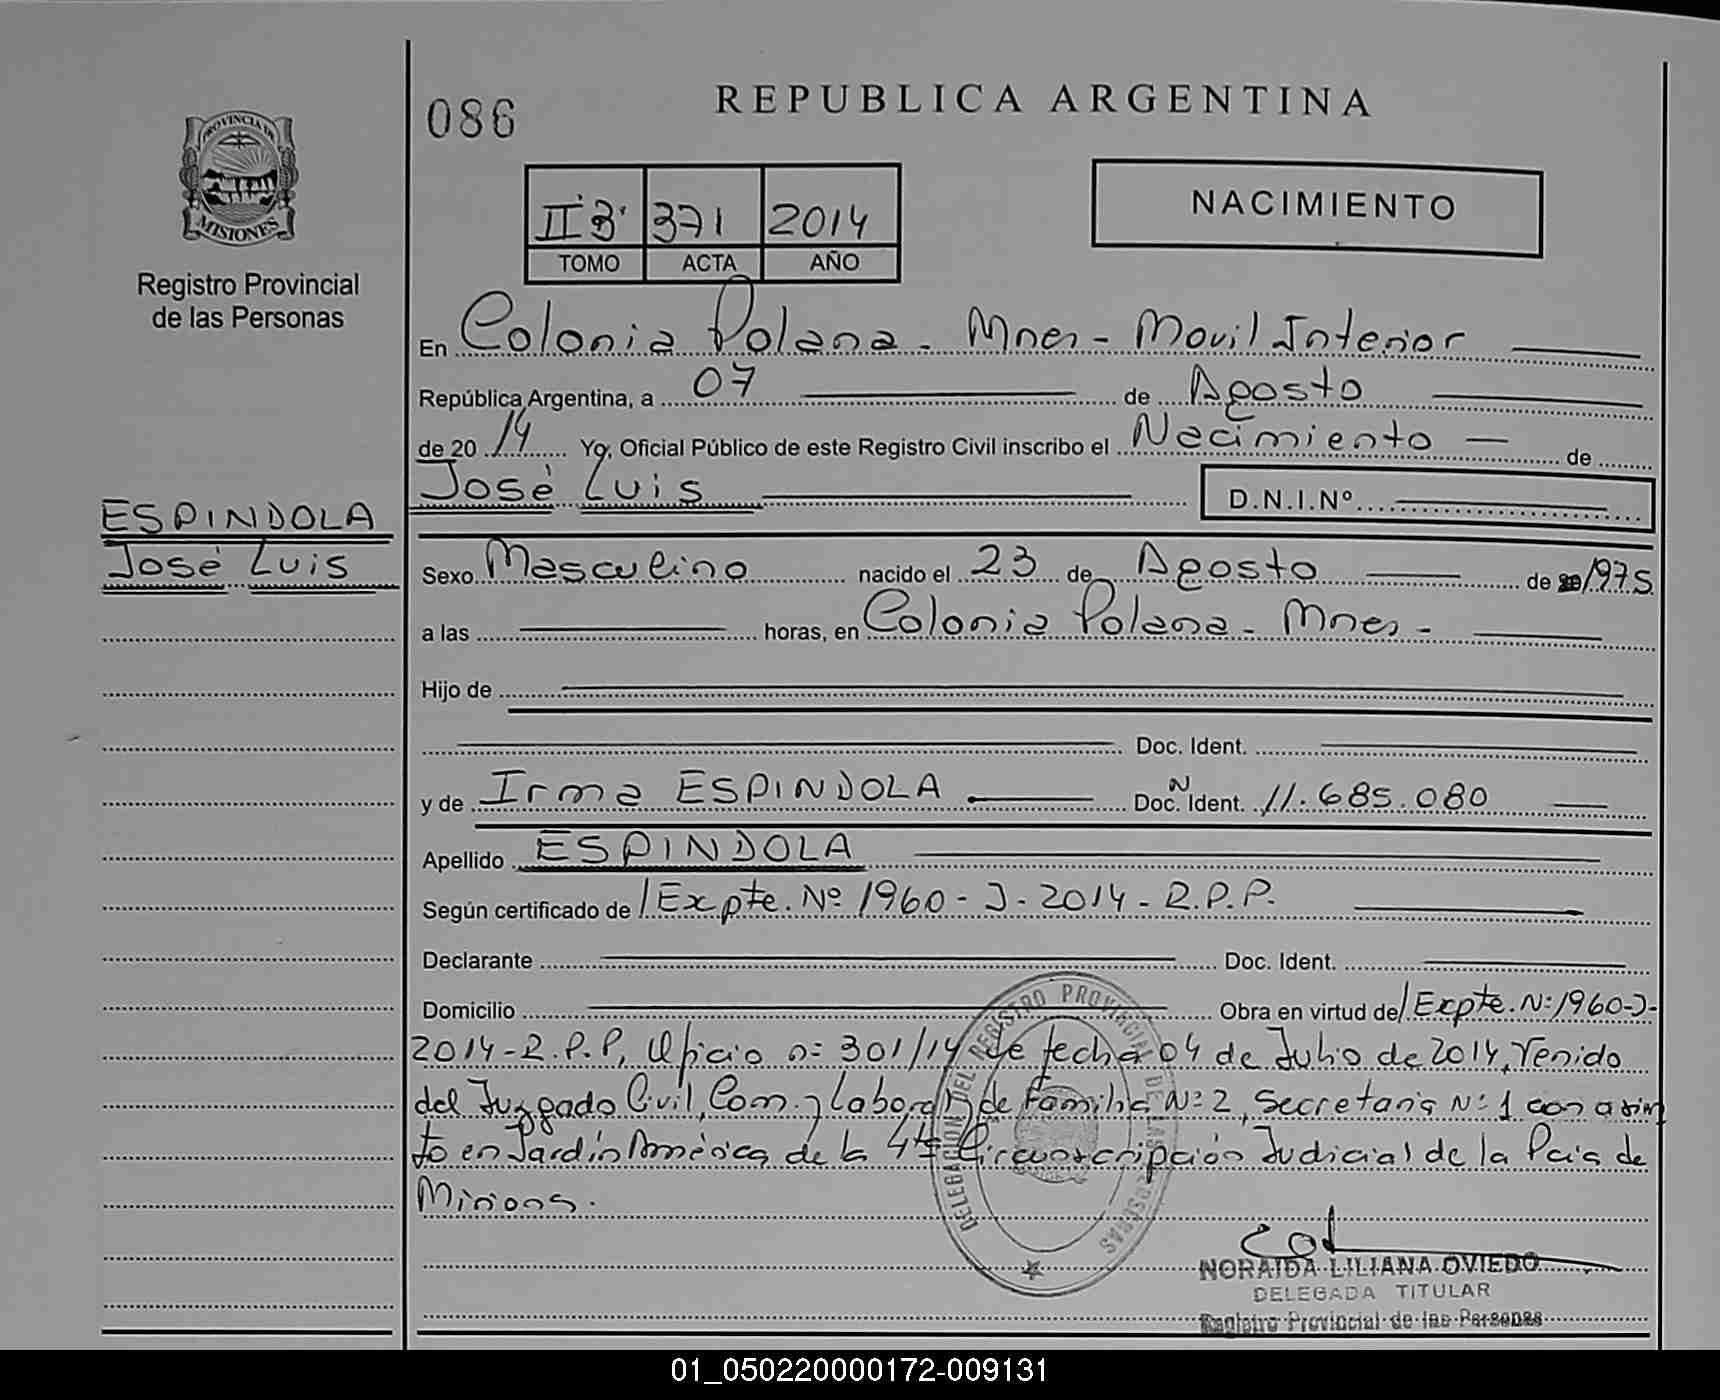 086
REPUBLICA ARGENTINA
PROVINCIA DE
MISIONES
Registro Provincial
de las Personas
II B 371 2014
TOMO ACTA AÑO
NACIMIENTO
En Colonia Polana - Mnes - Movil Interior
República Argentina, a 07 de Agosto
de 20 14 Yo, Oficial Público de este Registro Civil inscribo el Nacimiento de
José Luis D.N.I.Nº
ESPINDOLA
José Luis
Sexo Masculino nacido el 23 de Agosto de 1975
a las horas, en Colonia Polana - Mnes -
Hijo de
Doc. Ident.
y de Irma ESPINDOLA Doc. N Ident. 11.685.080
Apellido ESPINDOLA
Según certificado de / Expte. Nº 1960 - J - 2014 - R.P.P.
Declarante Doc. Ident.
Domicilio Obra en virtud de / Expte. Nº 1960-J-
2014 - R.P.P, Oficio nº 301/14 de fecha 04 de Julio de 2014, Venido
del Juzgado Civil, Com. y Laboral y de Familia Nº 2, Secretaria Nº 1 con asien
to en Jardín América, de la 4ta Circunscripción Judicial de la Pcia de
Misiones.
DELEGACION DEL REGISTRO PROVINCIAL DE LAS PERSONAS
NORAIDA LILIANA OVIEDO
DELEGADA TITULAR
Registro Provincial de las Personas
01_050220000172-009131